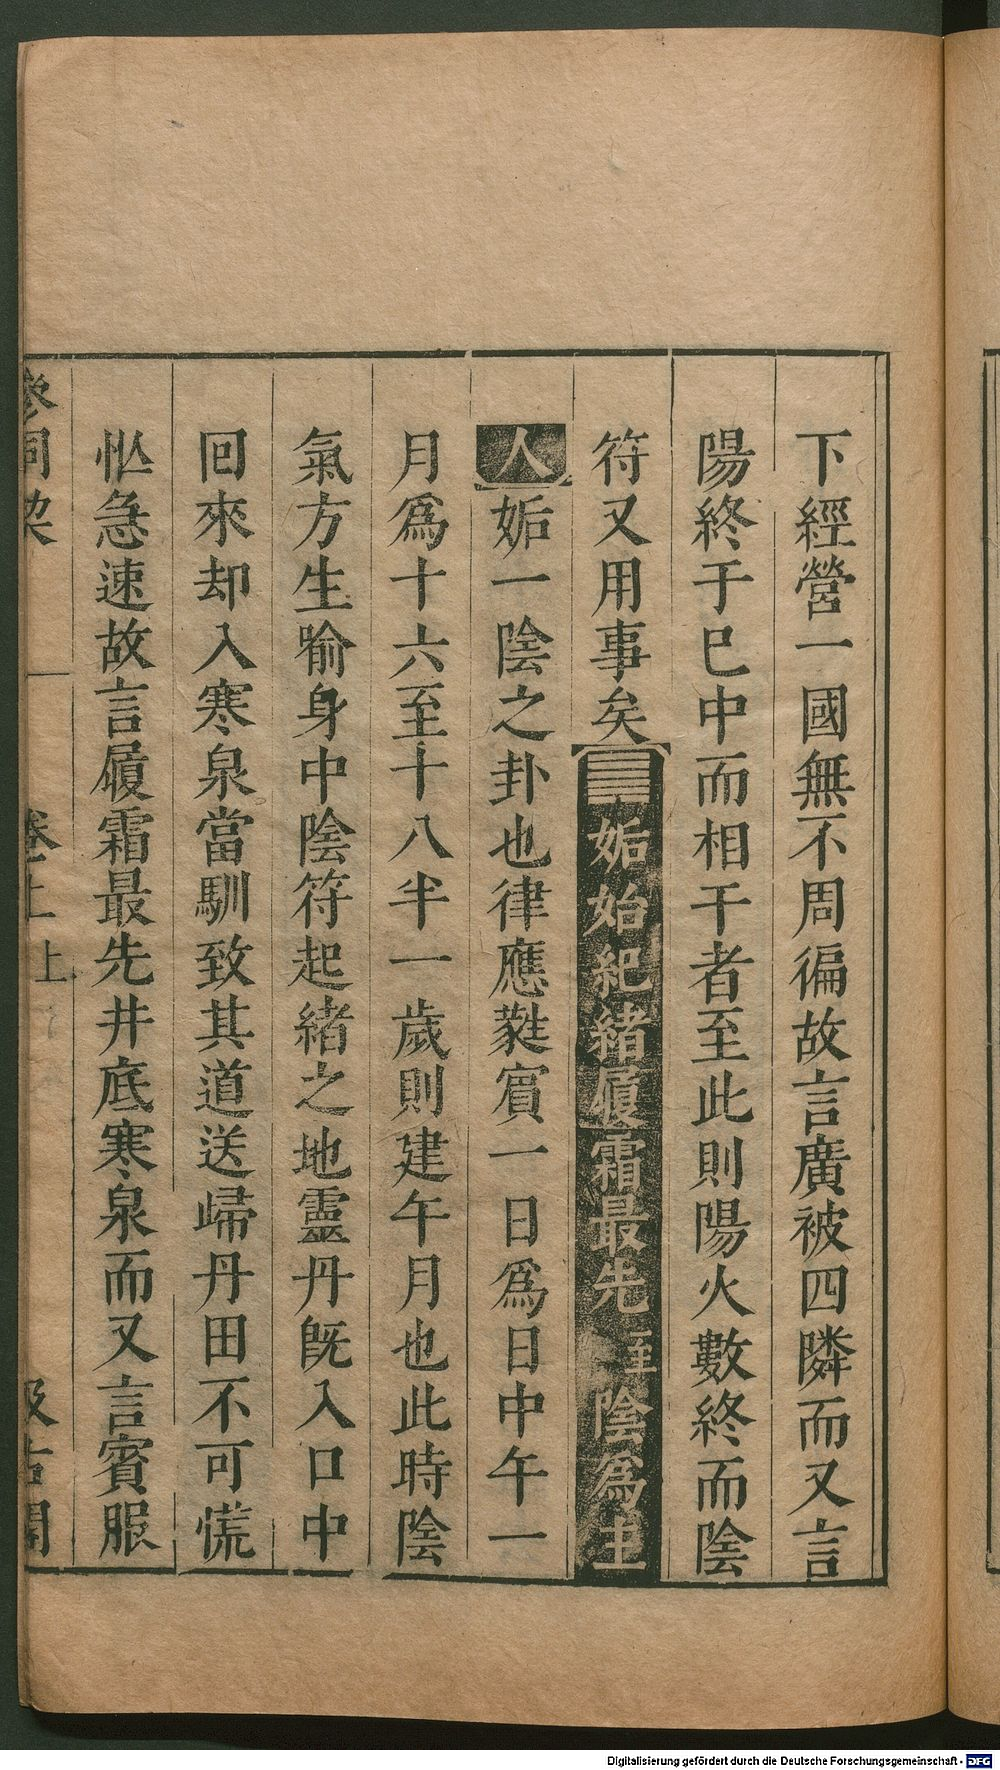 下經營一國無不周徧故言廣被四隣而又言
陽終于巳中而相干者至此則陽火數終而陰
符又用事矣姤始紀緒履霜最先至陰爲主
人姤一陰之卦也律應蕤賓一日爲日中午一
月爲十六至十八半一歲則建午月也此時陰
氣方生喻身中陰符起緒之地靈丹旣入口中
回來却入寒泉當馴致其道送歸丹田不可慌
忙急速故言履霜最先井底寒泉而又言賓服
參同契 卷上 上 汲古閣
Digitalisierung gefördert durch die Deutsche Forschungsgemeinschaft - DFG